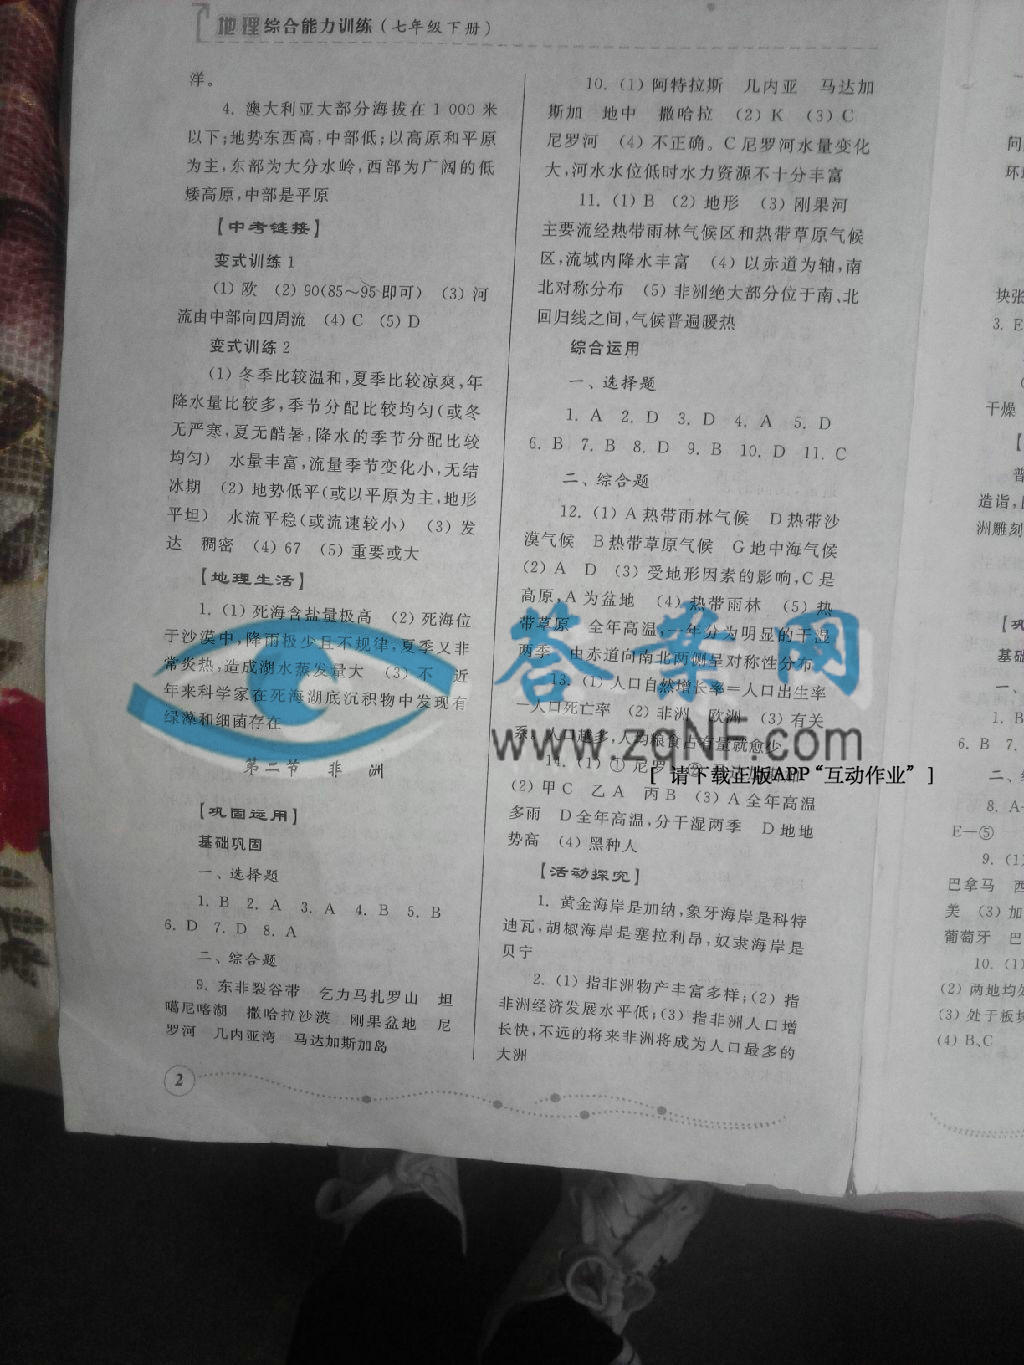 地理综合能力训练(七年级下册)
洋。
4. 澳大利亚大部分海拔在 1 000 米
以下;地势东西高,中部低;以高原和平原
为主,东部为大分水岭,西部为广阔的低
矮高原,中部是平原
【中考链接】
变式训练 1
(1) 欧 (2) 90(85～95即可) (3) 河
流由中部向四周流 (4) C (5) D
变式训练 2
(1) 冬季比较温和,夏季比较凉爽,年
降水量比较多,季节分配比较均匀(或冬
无严寒,夏无酷暑,降水的季节分配比较
均匀) 水量丰富,流量季节变化小,无结
冰期 (2) 地势低平(或以平原为主,地形
平坦) 水流平稳(或流速较小) (3) 发
达 稠密 (4) 67 (5) 重要或大
【地理生活】
1. (1) 死海含盐量极高 (2) 死海位
于沙漠中,降雨极少且不规律,夏季又非
常炎热,造成湖水蒸发量大 (3) 不 近
年来科学家在死海湖底沉积物中发现有
绿藻和细菌存在
第二节 非 洲
【巩固运用】
基础巩固
一、选择题
1. B 2. A 3. A 4. B 5. B
6. D 7. D 8. A
二、综合题
9. 东非裂谷带 乞力马扎罗山 坦
噶尼喀湖 撒哈拉沙漠 刚果盆地 尼
罗河 几内亚湾 马达加斯加岛
2
10. (1) 阿特拉斯 几内亚 马达加
斯加 地中 撒哈拉 (2) K (3) C
尼罗河 (4) 不正确。C 尼罗河水量变化
大,河水水位低时水力资源不十分丰富
11. (1) B (2) 地形 (3) 刚果河
主要流经热带雨林气候区和热带草原气候
区,流域内降水丰富 (4) 以赤道为轴,南
北对称分布 (5) 非洲绝大部分位于南、北
回归线之间,气候普遍暖热
综合运用
一、选择题
1. A 2. D 3. D 4. A 5. D
6. B 7. B 8. D 9. B 10. D 11. C
二、综合题
12. (1) A 热带雨林气候 D 热带沙
漠气候 B 热带草原气候 G 地中海气候
(2) A D (3) 受地形因素的影响,C 是
高原,A 为盆地 (4) 热带雨林 (5) 热
带草原 全年高温,一年分为明显的干湿
两季 由赤道向南北两侧呈对称性分布
13. (1) 人口自然增长率=人口出生率
－人口死亡率 (2) 非洲 欧洲 (3) 有关
系。人口越多,人均粮食占有量就愈少
14. (1) ① 尼罗
(2) 甲 C 乙 A 丙 B (3) A 全年高温
多雨 D 全年高温,分干湿两季 D 地地
势高 (4) 黑种人
【活动探究】
1. 黄金海岸是加纳,象牙海岸是科特
迪瓦,胡椒海岸是塞拉利昂,奴隶海岸是
贝宁
2. (1) 指非洲物产丰富多样;(2) 指
非洲经济发展水平低;(3) 指非洲人口增
长快,不远的将来非洲将成为人口最多的
大洲
答案网
www.zqNF.com
[ 请下载正版APP“互动作业” ]
问
环
块张
3. E
干燥
造诣,
洲雕刻
基础
一、
1. B
6. B 7.
二、
8. A
E—⑤
9. (1
巴拿马 西
美 (3) 加
葡萄牙 巴
10. (1)
(2) 两地均处
(3) 处于板块
(4) B、C